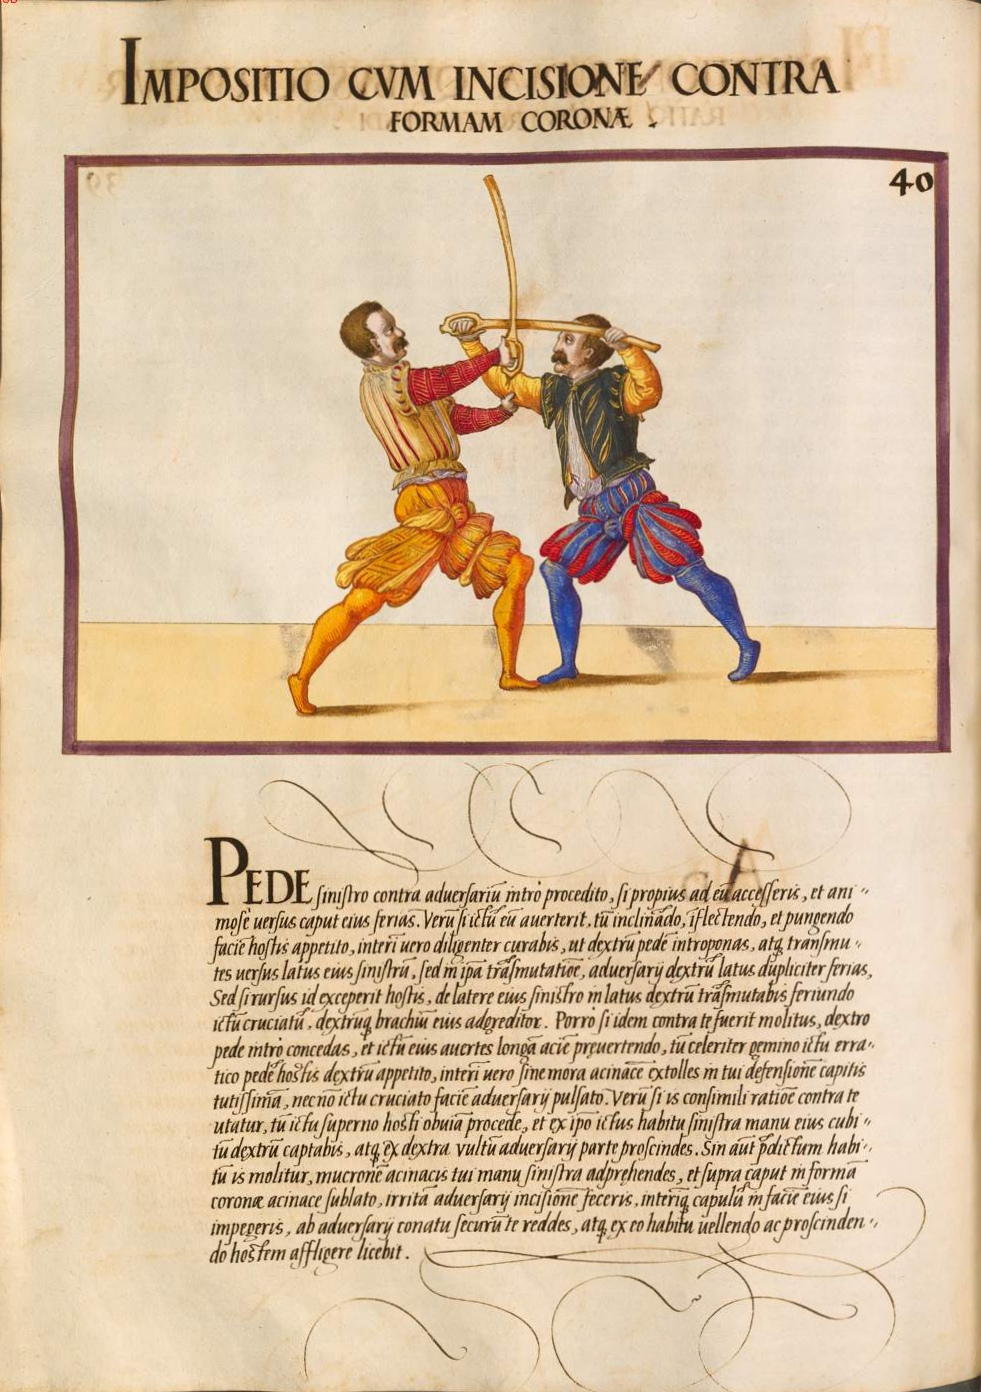 IMPOSITIO CVM INCISIONE CONTRA
FORMAM CORONÆ.
40
PEDE sinistro contra adversariũ intrò procedito, si propius ad eũ accesseris, et ani=
mose uersus caput eius ferias. Verũ si ictũ eũ auerterit, tũ inclinãdo, iflectendo, et pungendo
faciẽ hostis appetito, interĩ uero diligenter curabis, ut dextrũ pedẽ introponas, atq transmu=
tes uersus latus eius sinistrũ, sed in ipa trãsmutatiõe, aduersarij dextrũ latus dupliciter ferias,
Sed si rursus id exceperit hostis, de latere eius sinistro in latus dextrũ trãsmutabis feriundo
ictũ cruciatũ, dextrũq brachiũ eius adgreditor. Porrò si idem contra te fuerit molitus, dextro
pede intrò concedas, et ictũ eius auertes longã aciẽ preuertendo, tũ celeriter gemino ictu erra=
tico pedẽ hostis dextrũ appetito, interĩ uero sine mora acinacẽ extolles in tui defensionẽ capitis
tutissimã, necnõ ictu cruciato faciẽ aduersarij pulsato. Verũ si is consimili ratiõe contra te
utatur, tũ ictu superno hosti obuiã procede, et ex ipo ictus habitu sinistra manu eius cubi=
tũ dextrũ captabis, atq ex dextra vultũ aduersarij parte proscindes. Sin aũt pdictum habi=
tũ is molitur, mucronẽ acinacis tui manu sinistra adprehendes, et supra caput in formã
coronæ acinace sublato, irritã aduersarij incisionẽ feceris, interĩq capulũ in faciẽ eius si
impegeris, ab aduersarij conatu securũ te reddes, atq ex eo habitu uellendo ac proscinden=
do hostem affligere licebit.